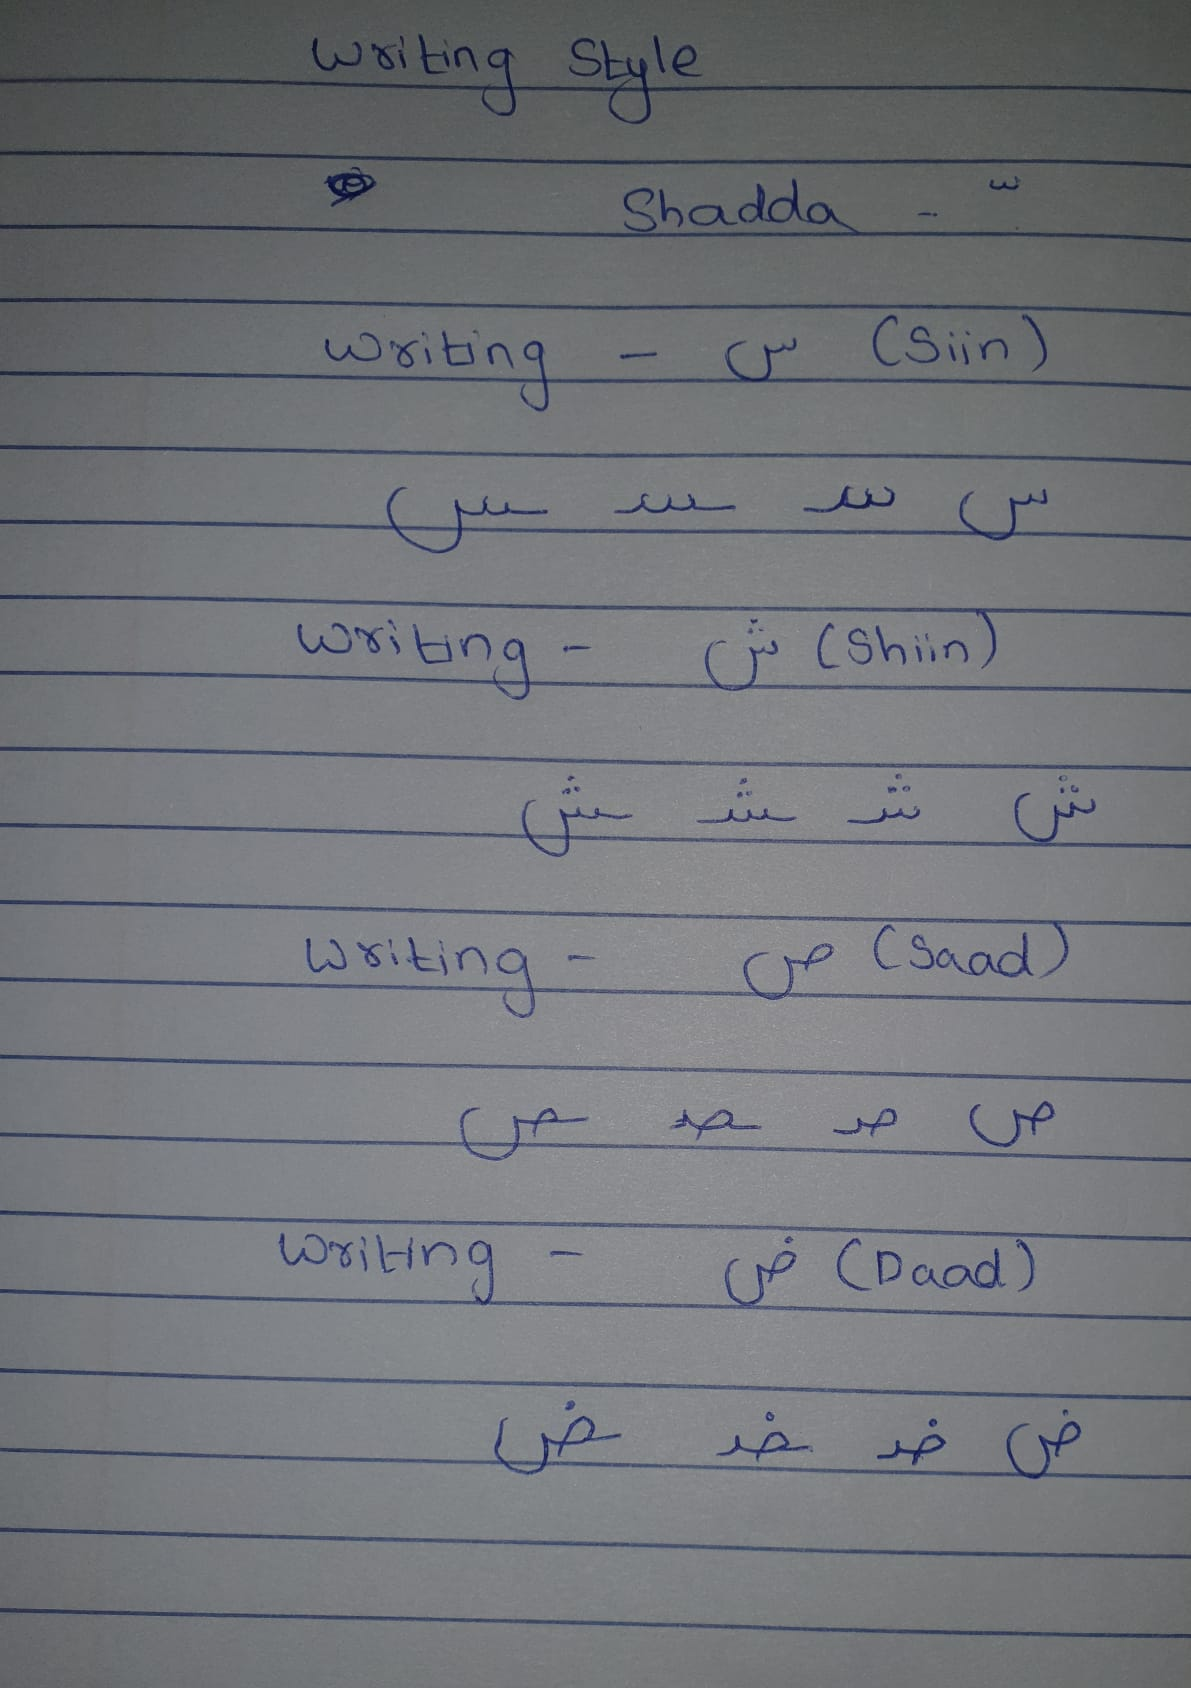 Writing Style
Shadda - ّ
Writing - س (Siin)
س سـ ـسـ ـس
Writing - ش (Shiin)
ش شـ ـشـ ـش
Writing - ص (Saad)
ص صـ ـصـ ـص
Writing - ض (Daad)
ض ضـ ـضـ ـض